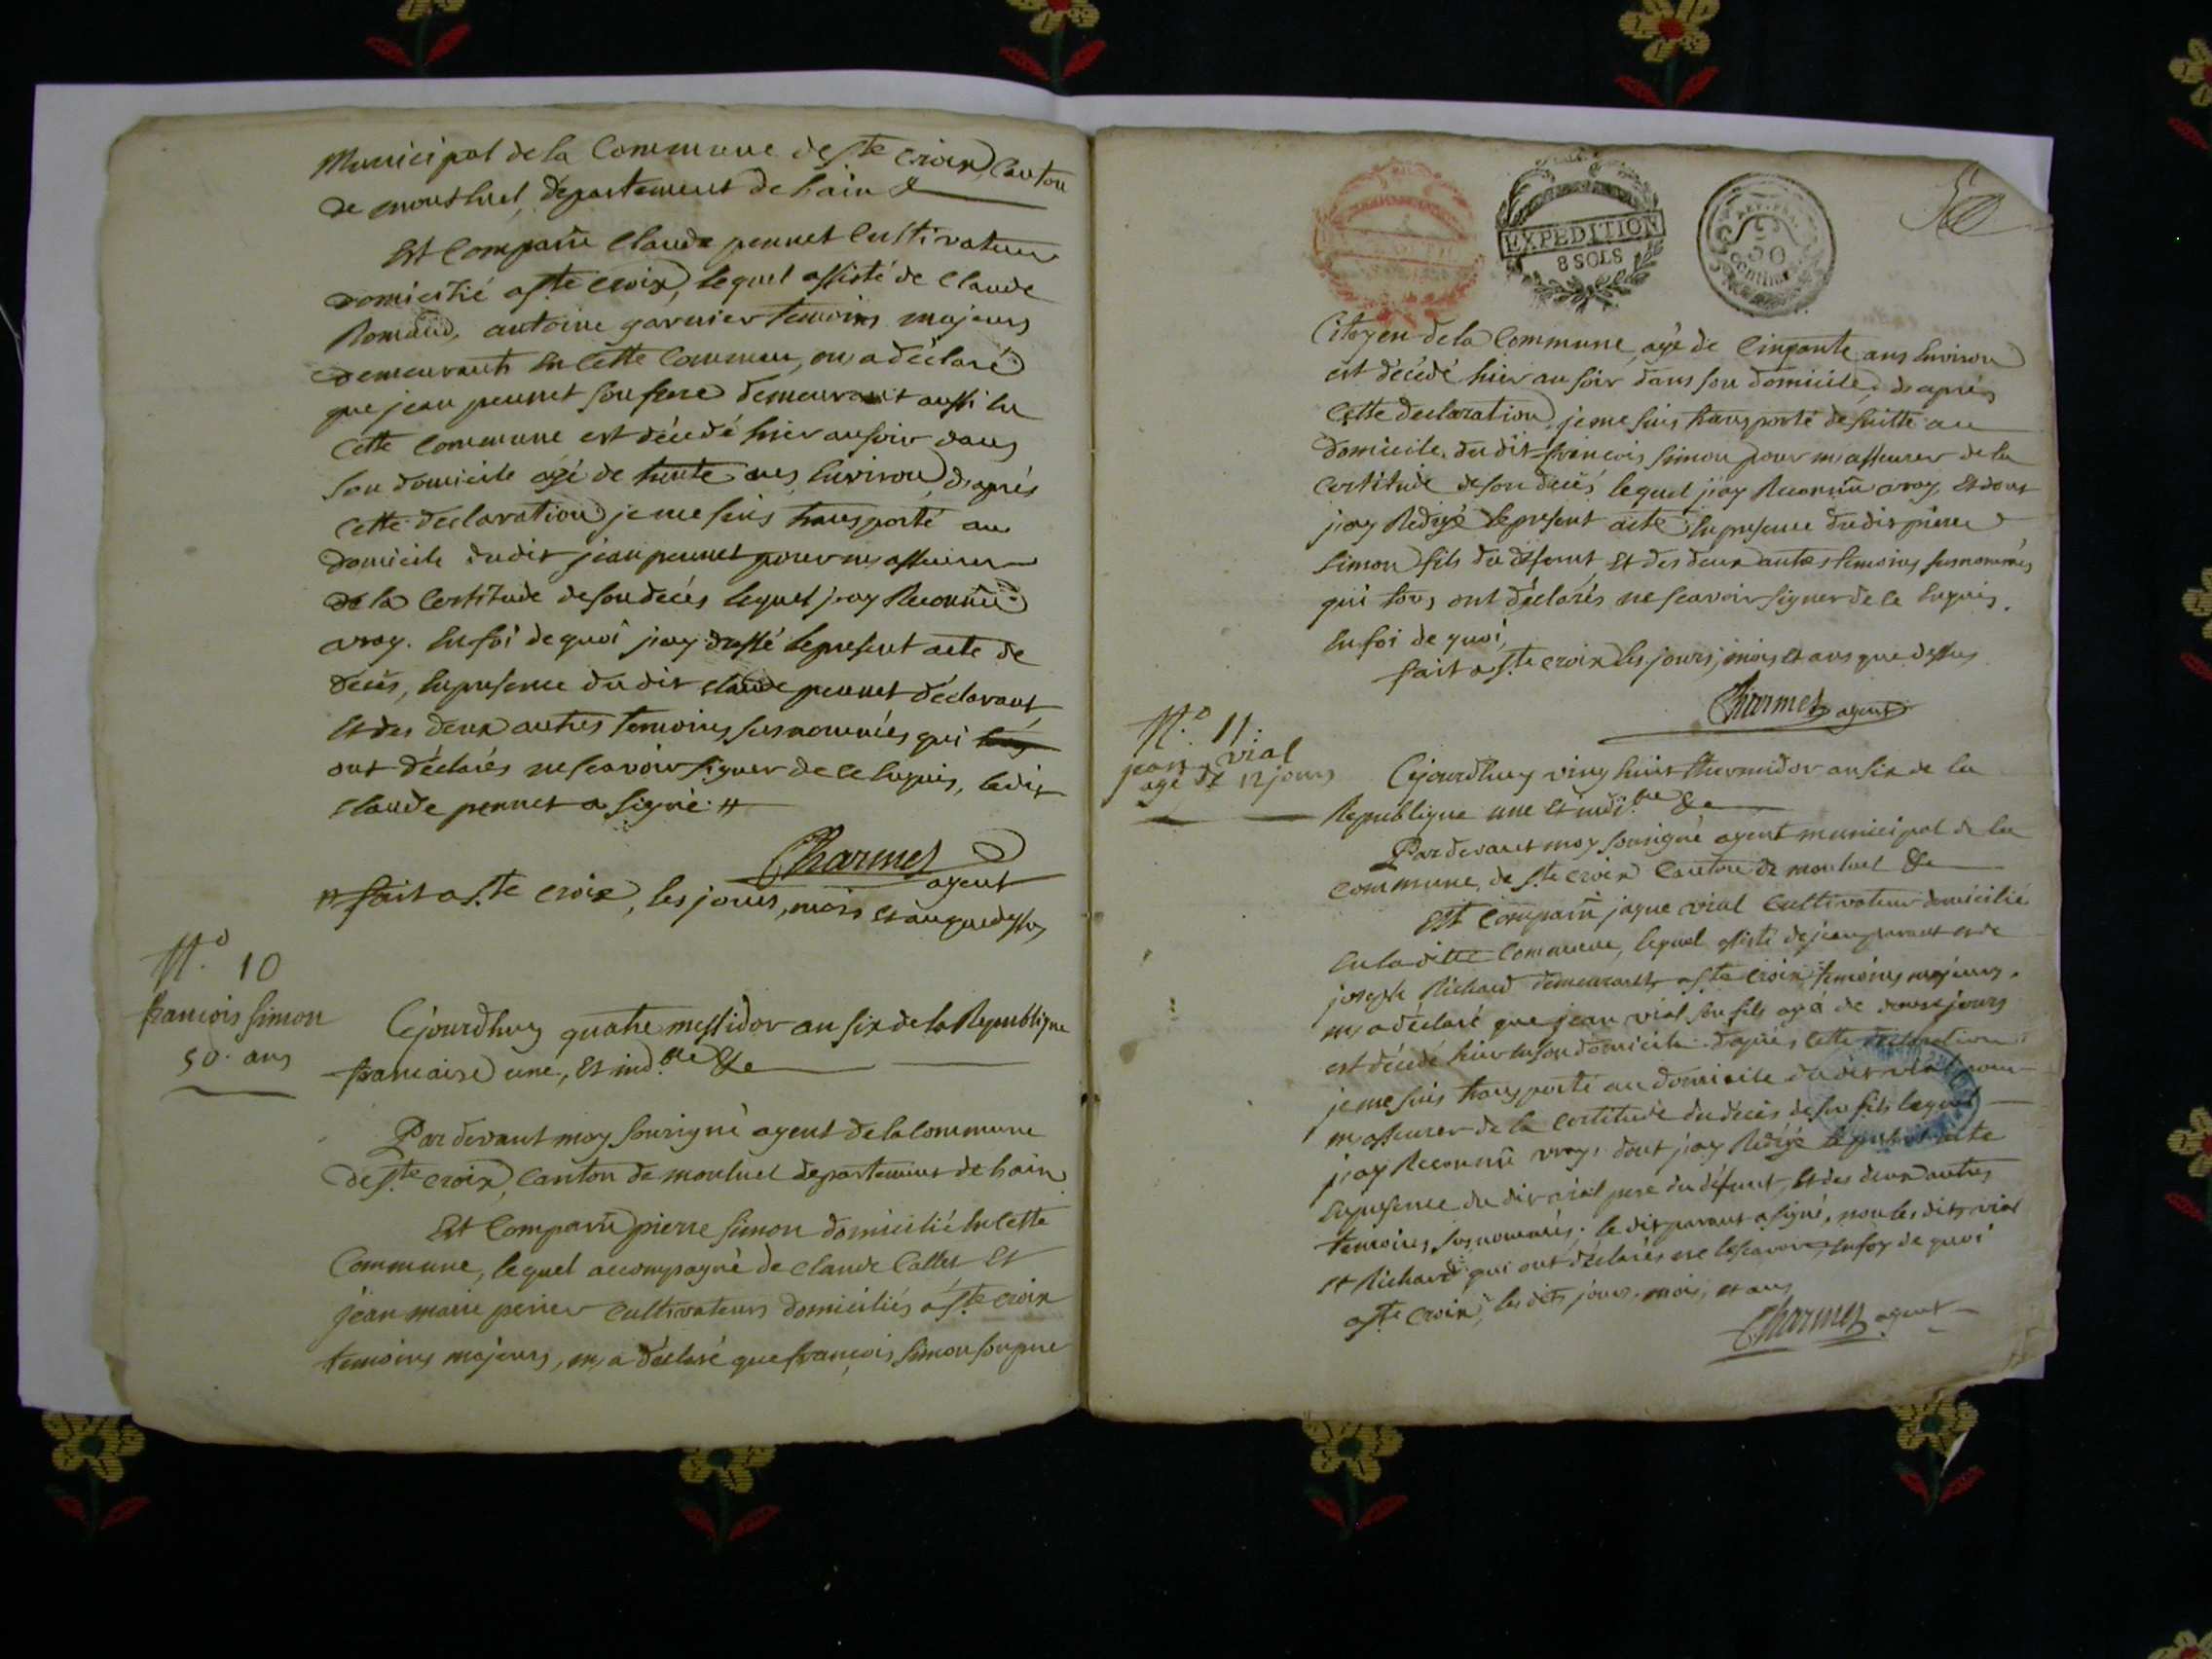 Municipal de la Commune de Ste croix, Canton
de monthuel, departement de hain &
Est Comparu Claude pennet Cultivateur
domicilié a Ste Croix, lequel assisté de Claude
Romand, antoine garnier temoins majeurs
demeurants en Cette Commune, m'a déclaré
que jean pennet son frere demeurant aussi en
Cette Commune est décédé hier au soir dans
son domicile agé de trente ans Environ, d'aprés
Cette declaration je me suis transporté au
domicile dudit jean pennet pour m'assurer
de la Certitude de son decés lequel j'ay Reconnu
vray. En foi de quoi j'ay dressé le present acte de
decés, En presence du dit Claude pennet déclarant,
Et des deux autres temoins susnommés qui
ont déclarés ne scavoir signer de ce Enquis, ledit
Claude pennet a signé #
Charmet
agent
# fait a Ste Croix, les jours, mois et an que dessus
No. 10
francois Simon
50. ans
Cejourdhuy quatre messidor an six de la Republique
francaise une, Et indble &e
Par devant moy Sousigné agent de la Commune
de Ste croix, Canton de monluel departement de hain
Est Comparu pierre Simon domicilié En Cette
Commune, lequel accompagné de Claude Collet Et
jean marie perier Cultivateurs domiciliés a Ste Croix
temoins majeurs, m'a déclaré que francois Simon son pere
EXPEDITION
8 SOLS
50
Centimes
Citoyen de la Commune, agé de Cinquante ans Environ
est décédé hier au soir dans son domicile, d'aprés
Cette declaration, je me suis transporté de suitte au
domicile du dit francois Simon pour m'assurer de la
Certitude de son decés lequel j'ay Reconnu vray, Et dont
j'ay Redigé le present acte En presence du dit pierre
Simon fils du défunt Et des deux autres temoins susnommés
qui tous ont déclarés ne scavoir signer de ce Enquis.
En foi de quoi,
fait a Ste croix les jours, mois et ans que dessus
Charmet agent
No. 11.
jean vial
agé de 12 jours
Cejourdhuy vingt huit thermidor an six de la
Republique une Et indble &e
Par devant moy sousigné agent municipal de la
Commune, de Ste croix Canton de monluel &e
Est Comparu jaque vial Cultivateur domicilié
En la ditte Commune, lequel assisté de jean et de
joseph Richard demeurants a Ste Croix temoins majeurs,
m'a déclaré que jean vial son fils agé de douze jours
est décédé hier en son domicile d'aprés Cette declaration
je me suis transporté au domicile du dit vial pour
m'assurer de la Certitude du decés de son fils lequel
j'ay Reconnu vray, dont j'ay Redigé le present acte
En presence du dit vial pere du défunt, Et des deux autres
temoins susnommés; le dit a signé, non les dits vial
et Richard qui ont déclarés ne le scavoir, En foy de quoi
a Ste Croix, les dits jour, mois, et ans
Charmet agent